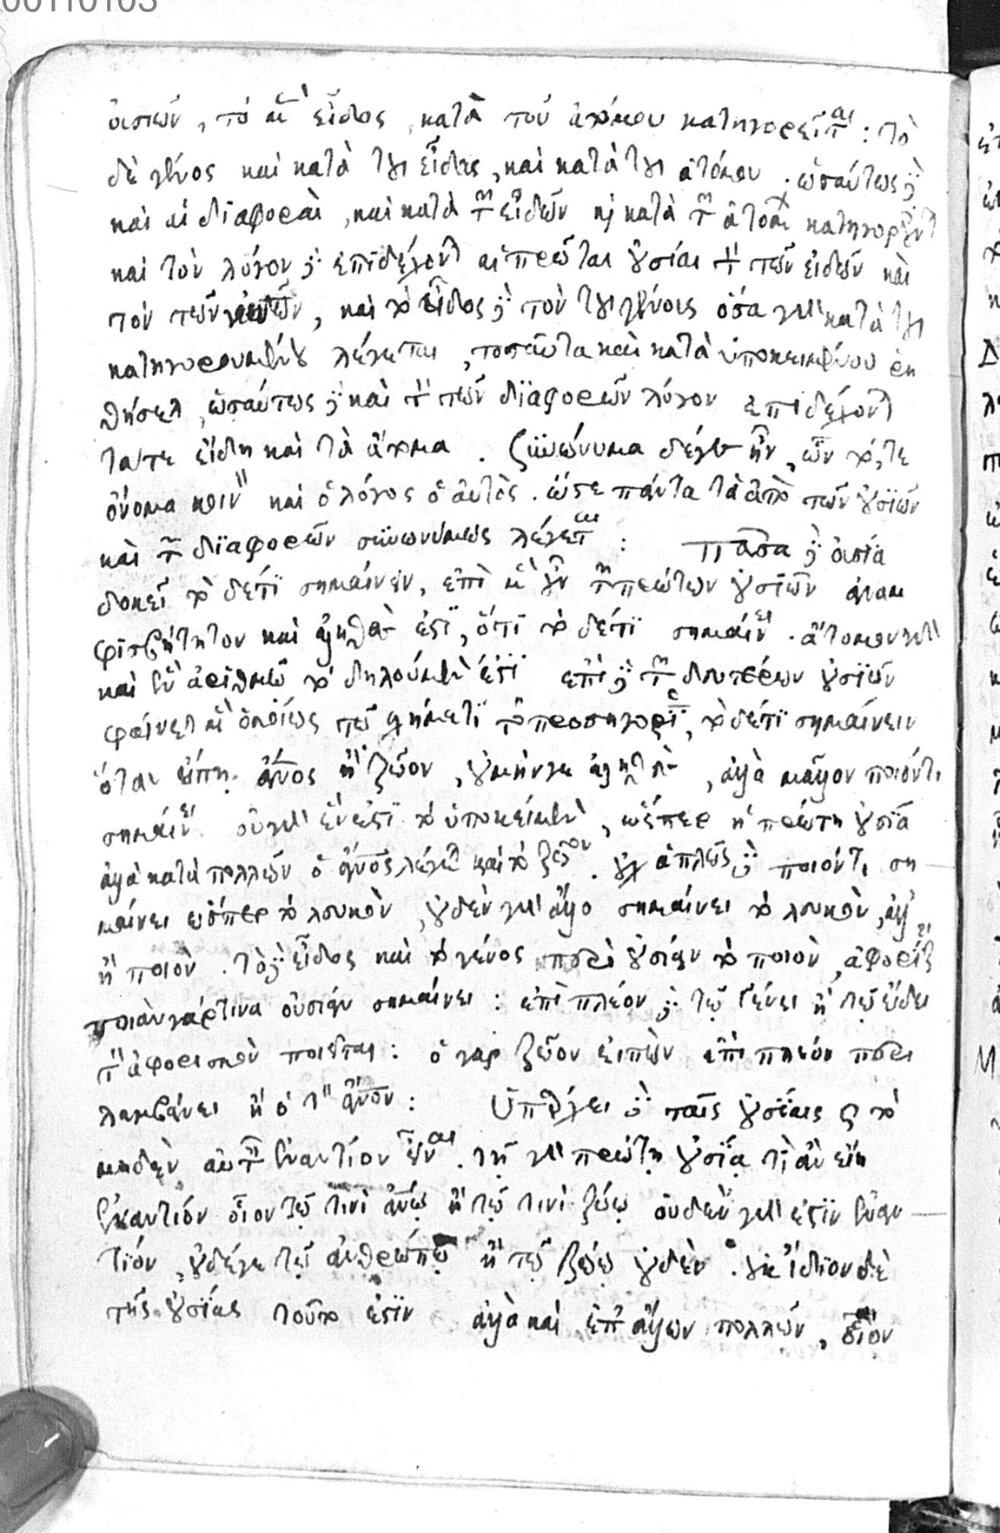 00110103
οὐσιῶν, τὸ μὲν εἶδος, κατὰ τοῦ ἀτόμου κατηγορεῖται : τὸ
δὲ γένος καὶ κατὰ τοῦ εἴδους, καὶ κατὰ τοῦ ἀτόμου . ὡσαύτως δὲ
καὶ αἱ διαφοραὶ, καὶ κατὰ τῶν εἰδῶν κ̀ κατὰ τῶν ἀτόμων κατηγοροῦντ
καὶ τὸν λόγον δὲ ἐπιδέχοντ αἱ πρῶται οὐσίαι τὸν τῶν εἰδῶν καὶ
τὸν τῶν γενῶν, καὶ τὸ εἶδος δὲ τὸν τοῦ γένους ὅσα γὰρ κατὰ τοῦ
κατηγορουμένου λέγεται, τοσαῦτα καὶ κατὰ ὑποκειμένου ῥη
θήσεται, ὡσαύτως δὲ καὶ τὸν τῶν διαφορῶν λόγον ἐπιδέχοντ
τά τε εἴδη καὶ τὰ ἄτομα . συνώνυμα δέ γε ἦν, ὧν τό, τε
ὄνομα κοινὸν καὶ ὁ λόγος ὁ αὐτὸς . ὥστε πάντα τὰ ἀπὸ τῶν οὐσιῶν
καὶ τῶν διαφορῶν συνωνύμως λέγεται : πᾶσα δὲ οὐσία
δοκεῖ τόδέ τι σημαίνειν, ἐπὶ μὲν οὖν τῶν πρώτων οὐσιῶν ἀναμ
φισβήτητον καὶ ἀληθές ἐστι, ὅτι τόδέ τι σημαίνει . ἄτομον γὰρ
καὶ ἓν ἀριθμῷ τὸ δηλούμενόν ἐστι ἐπὶ δὲ τῶν δευτέρων οὐσιῶν
φαίνεται μὲν ὁμοίως τῷ σχήματι τῆς προσηγορίας, τόδέ τι σημαίνειν
ὅταν εἴπῃ ἄνος ἢ ζῶον, οὐ μήν γε ἀληθές, ἀλλὰ μᾶλλον ποιόν τι
σημαίνει οὐ γὰρ ἕν ἐστι τὸ ὑποκείμενον, ὥσπερ ἡ πρώτη οὐσία
ἀλλὰ κατὰ πολλῶν ὁ ἄνος λέγεται καὶ τὸ ζῶον . οὐχ ἁπλῶς δὲ ποιόν τι ση
μαίνει ὥσπερ τὸ λευκὸν, οὐδὲν γὰρ ἄλλο σημαίνει τὸ λευκὸν, ἀλλ'
ἢ ποιὸν . τὸ δὲ εἶδος καὶ τὸ γένος περὶ οὐσίαν τὸ ποιὸν ἀφορίζει
ποιὰν γάρ τινα οὐσίαν σημαίνει : ἐπὶ πλέον δὲ τῷ γένει ἢ τῷ εἴδει
τὸν ἀφορισμὸν ποιεῖται : ὁ γὰρ ζῶον εἰπὼν ἐπὶ πλέον περι
λαμβάνει ἢ ὁ τὸν ἄνον : Ὑπάρχει δὲ ταῖς οὐσίαις κ̀ τὸ
μηδὲν αὐταῖς ἐναντίον εἶναι . τῇ γὰρ πρώτῃ οὐσίᾳ τί ἂν εἴη
ἐναντίον οἷον τῷ τινὶ ἀνω ἢ τῷ τινὶ ζώω οὐδὲν γάρ ἐστιν ἐναν
τίον, οὐδέ γε τῷ ἀνθρώπῳ ἢ τῷ ζώῳ οὐδὲν . οὐκ ἴδιον δὲ
τῆς οὐσίας τοῦτο ἐστὶν ἀλλὰ καὶ ἐπ' ἄλλων πολλῶν, οἷον